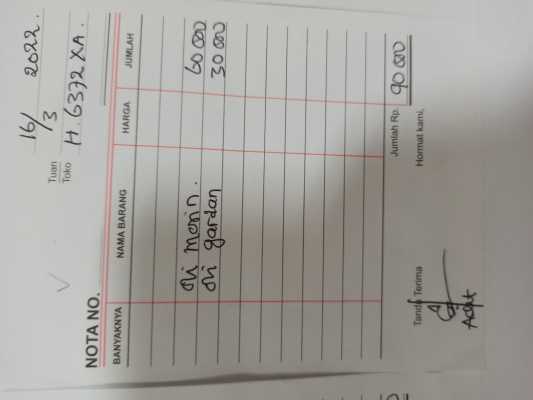 16/3 2022.
Tuan
Toko H. 6372 XA.
NOTA NO.
BANYAKNYA NAMA BARANG HARGA JUMLAH
oli mesin. 60 000
oli gardan 30 000
Jumlah Rp. 90 000
Tanda Terima Hormat kami,